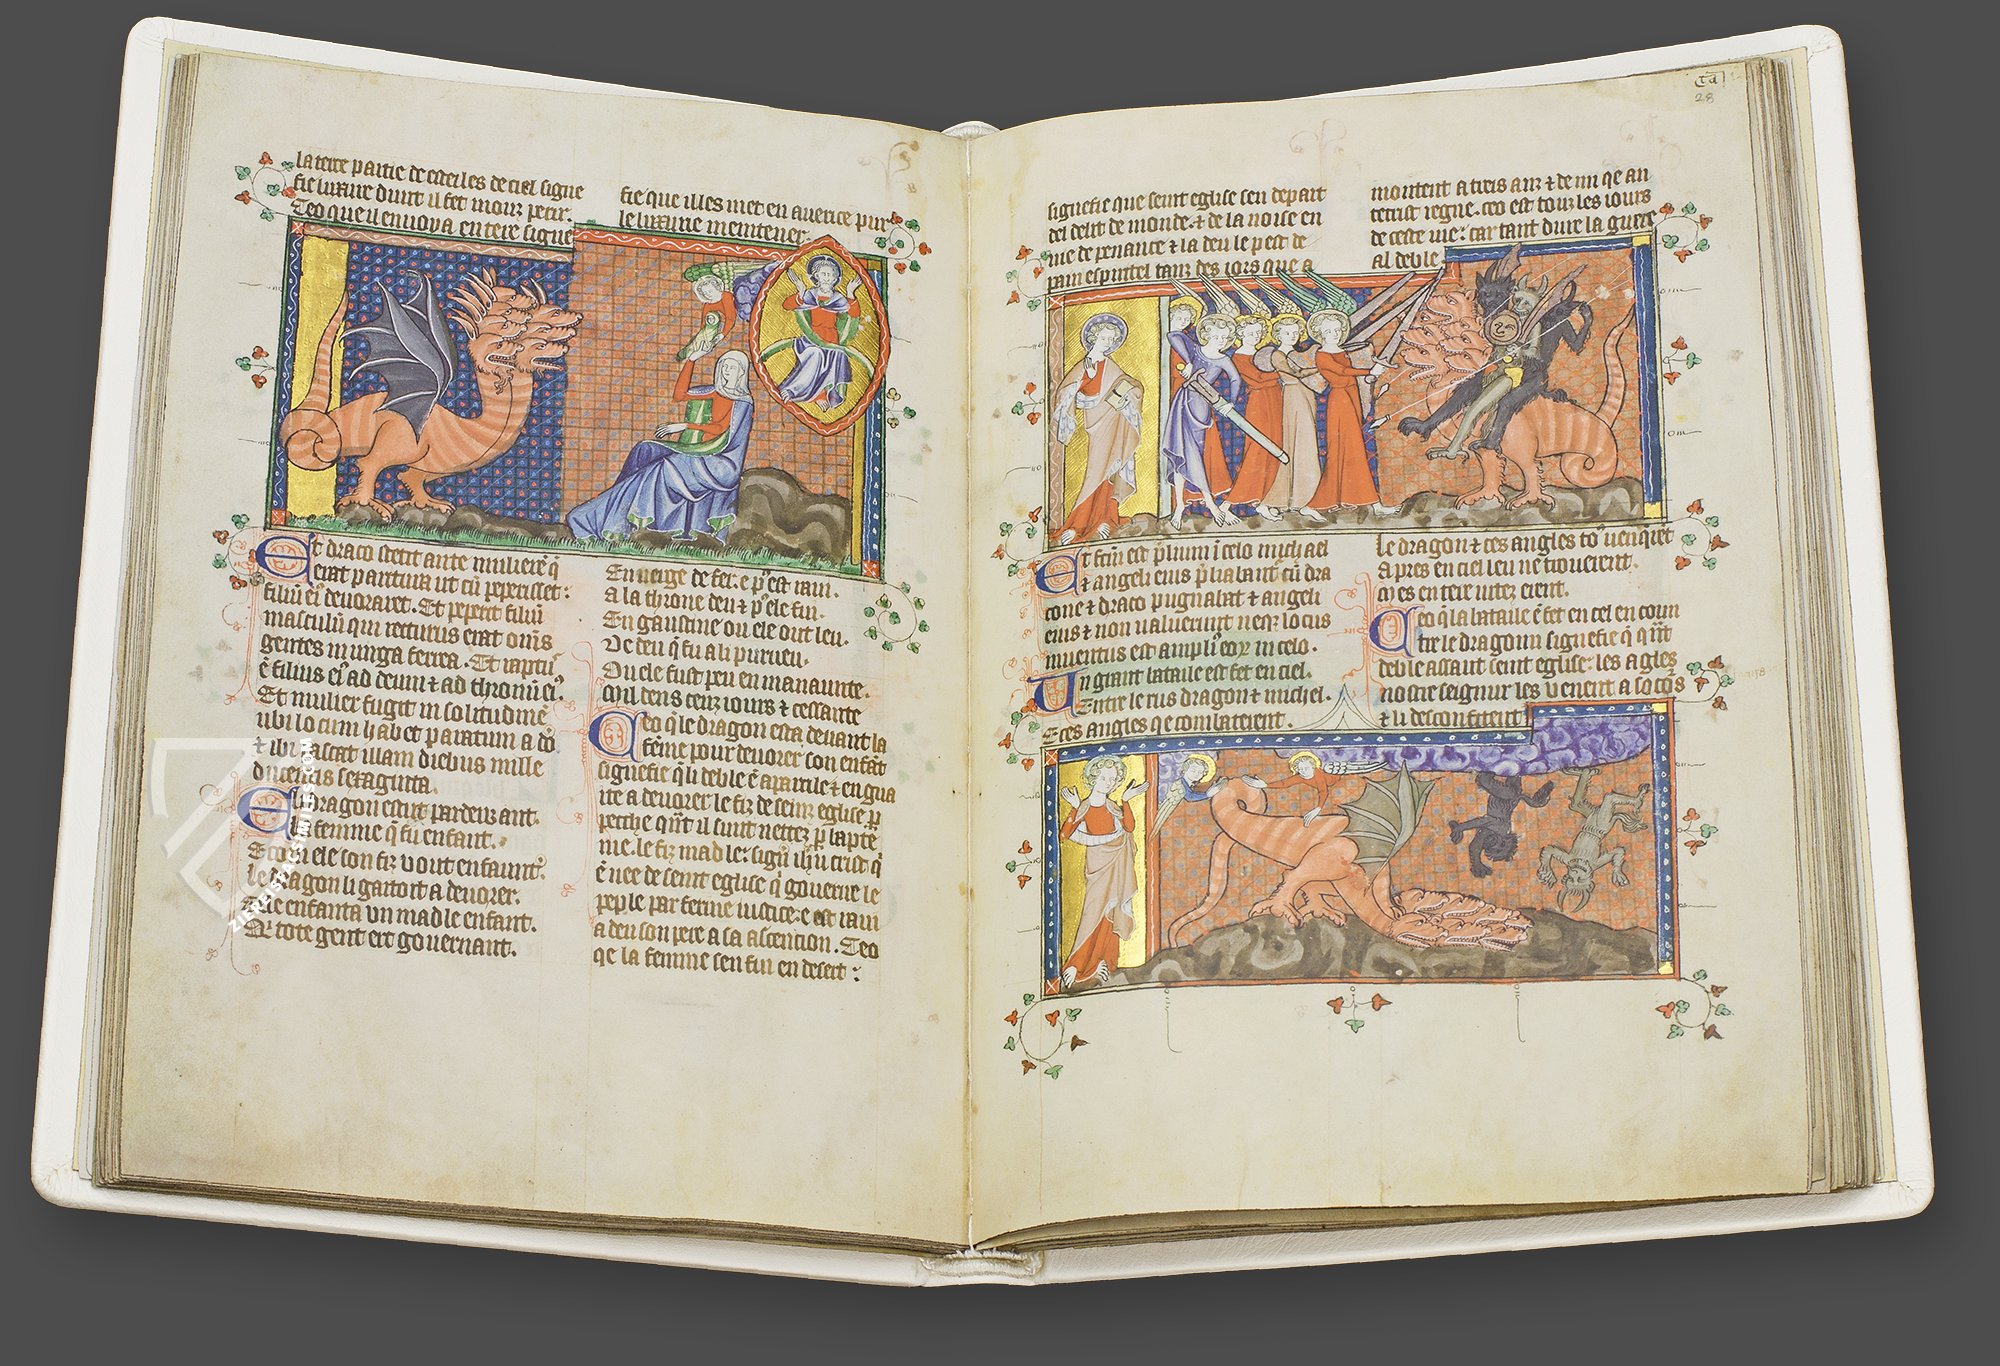 la terce partie de esteiles de ciel signe
fie luxure dunt il fet mouz perir.
Ceo que il envoya en tere signe
fie que illes met en averice pur
le luxurie meintener.
Et draco stetit ante mulierē q̄
erat paritura ut cū peperisset:
filiū ei devoraret. Et peperit filiū
masculū qui recturus erat om̄s
gentes in virga ferrea. Et raptus
ē filius ei ad deum ⁊ ad thronū ei.
Et mulier fugit in solitudinē
ubi locum habet paratum a dō
⁊ ibi pascat illam diebus mille
ducentis sexaginta.
El dragon estut par devant.
femme q̄ fu enfant.
E com ele son fiz vout enfaunt.
Le dragon li gaitoit a devorer.
Que enfanta un madle enfant.
tote gent ert governant.
En verge de fer. e p̄ est ravi.
a la throne deu ⁊ p̄ ele fui.
En gaustine ou ele out leu.
De deu q̄ fu ali purveu.
Ou ele fust peu en manaunte.
mil deus cenz iours ⁊ cessante
Ceo q̄ le dragon esta devant la
fēme pour devorer son enfāt
signefie q̄ li deble ē aparile ⁊ en gua
ite a devorer le fiz de seint eglise p̄
peche qn̄t il sunt nettez p̄ lapte
me. le fiz madle: signī ihū crist q̄
ē nee de seint eglise q̄ governe le
peple par ferme iustice: e est ravi
a deu son pere a sa ascention. Ceo
qe la femme sen fui en desert:
28
signefie que seint eglise sen depart
del delit de monde. ⁊ de la noise en
vie de penance ⁊ la deu le pest de
pain espiritel tanz des iors que a
montent a treis anz ⁊ demi qe an
tecrist regne. ceo est touz les iours
de ceste vie: car tant dure la guere
al deble
Et fcm̄ est p̄lium ī celo michael
⁊ angeli eius p̄liabant cū dra
cone ⁊ draco pugnabat ⁊ angeli
eius ⁊ non valuerunt neq locus
inventus est ampli eoꝝ in celo.
Un grant bataile est fet en ciel.
Entre le rus dragon ⁊ michel.
E ces angles qe combateient.
le dragon ⁊ ces angles to venquet
apres en ciel leu ne troveient.
mes en tere vitez erent.
Ceo q̄ la bataile ē fet en cel en coun
tre le dragoun signefie q̄ qn̄t
deble assaut seint eglise: les agles
nostre seignur les venent a socors
⁊ li desconfitent
ZIEREIS FACSIMILES.COM